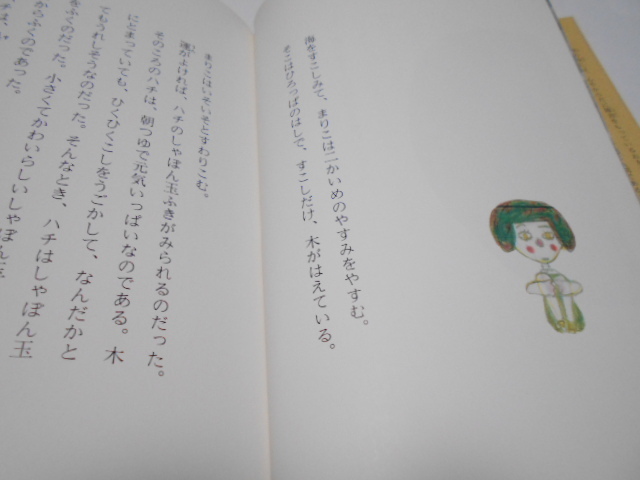 海をすこしみて、まりこは二かいめのやすみをやすむ。
そこはひろっぱのはしで、すこしだけ、木がはえている。
まりこはいそいそとすわりこむ。
運がよければ、ハチのしゃぼん玉ふきがみられるのだった。
そのころのハチは、朝つゆで元気いっぱいなのである。木
にとまっていても、ひくひくこしをうごかして、なんだかと
てもうれしそうなのだった。そんなとき、ハチはしゃぼん玉
をふくのだった。小さくてかわいらしいしゃぼん玉
からふくのであった。